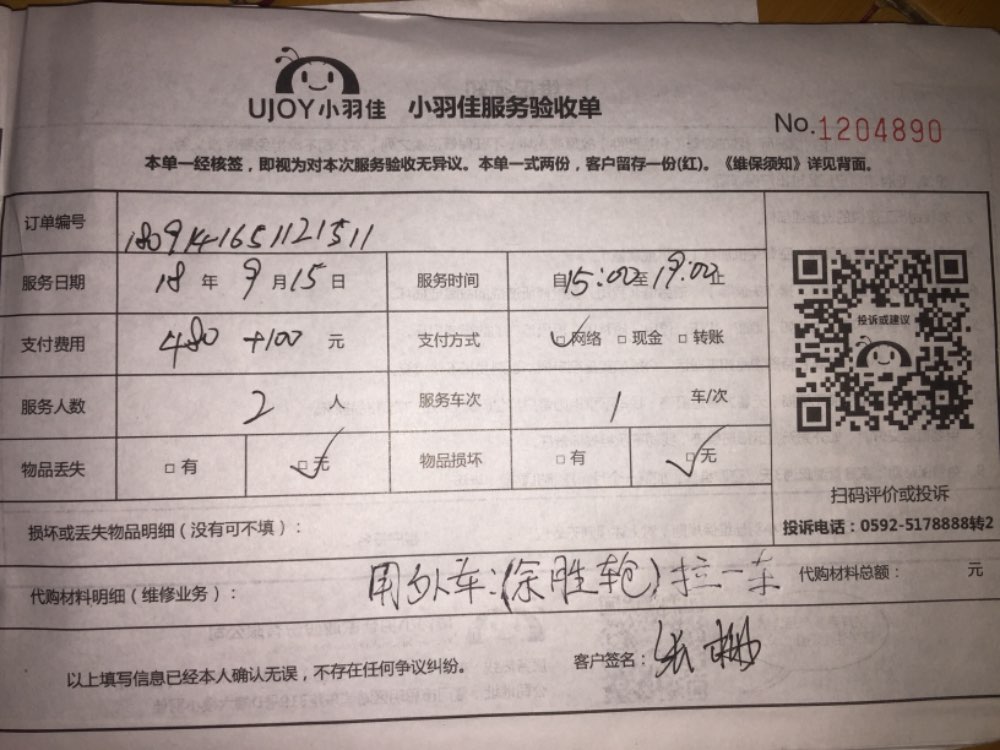 UJOY小羽佳 小羽佳服务验收单
No.1204890
本单一经核签，即视为对本次服务验收无异议。本单一式两份，客户留存一份(红)。《维保须知》详见背面。
订单编号 1809141651121511
服务日期 18 年 9 月 15 日 服务时间 自 15:00 至 19:00 止
支付费用 480 +100 元 支付方式 ☑网络 □现金 □转账
服务人数 2 服务车次 1 车/次
物品丢失 □有 ☑无 物品损坏 □有 ☑无
投诉或建议
扫码评价或投诉
投诉电话：0592-5178888转2
损坏或丢失物品明细（没有可不填）：
代购材料明细（维修业务）： 用外车:(余胜轮)拉一车 代购材料总额： 元
以上填写信息已经本人确认无误，不存在任何争议纠纷。 客户签名：张